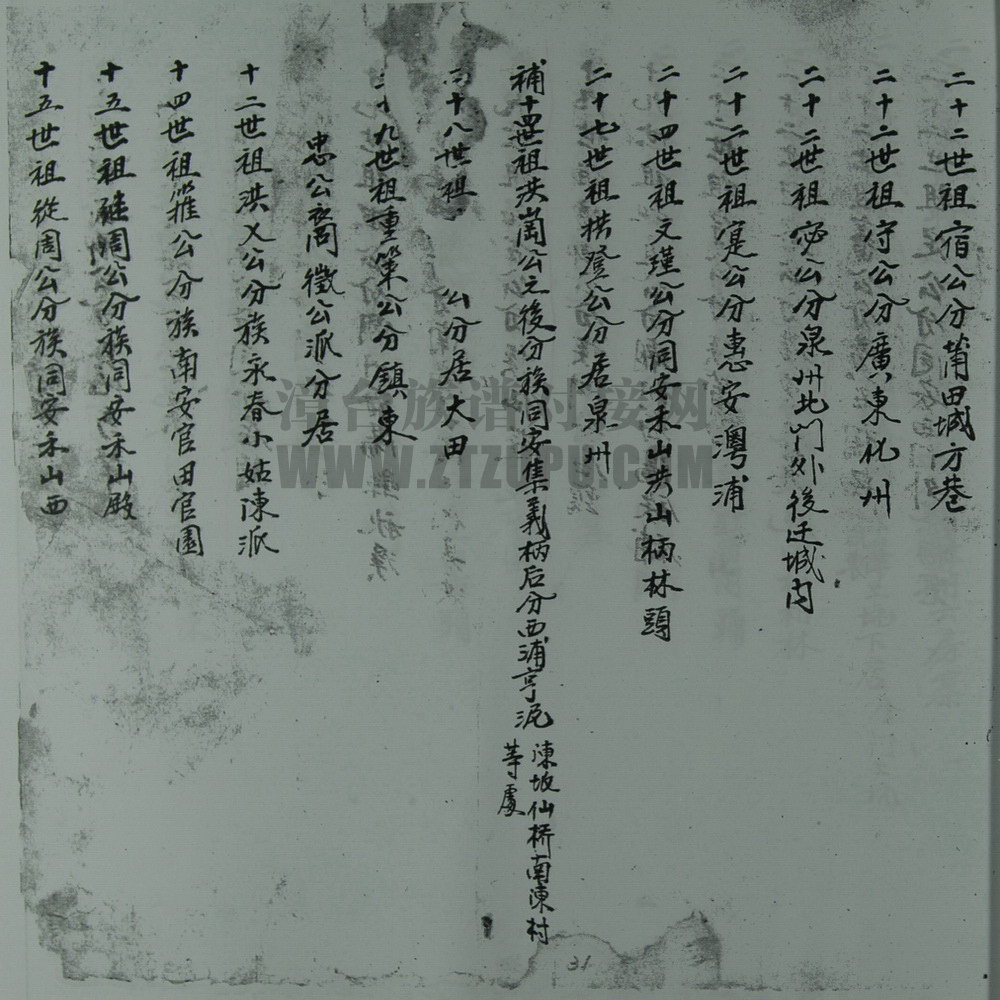 二十二世祖宿公分莆田城方巷
二十二世祖守公分廣東化州
二十二世祖宓公分泉州北门外後迁城内
二十二世祖寔公分惠安灣浦
二十四世祖文瑾公分同安禾山後山柄林頭
二十七世祖拱登公分居泉州
補十四世祖洪崗公之後分族同安集美柄后分西浦亨泥
陳坡仙桥南陳村
等處
十八世祖 公分居大田
十九世祖重策公分鎮東
忠公裔徵公派分居
十二世祖洪义公分族永春小姑陳派
十四世祖公分族南安官田官園
十五世祖周公分族同安禾山殿
十五世祖從周公分族同安禾山西
漳台族谱对接网
WWW.ZTZUPU.COM
31